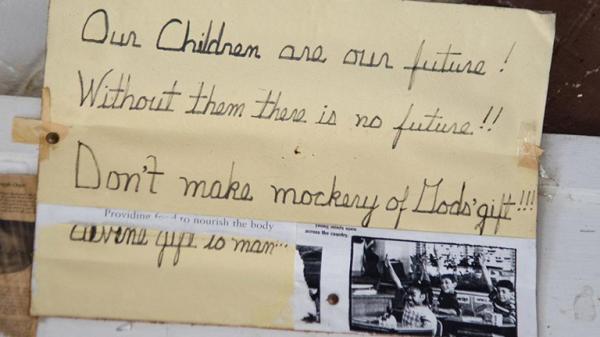 Our Children are our future !
Without them there is no future !!
Don't make mockery of Gods' gift !!!
Providing food to nourish the body
devine gift to man...
across the country.